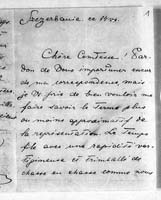 1
Szczerbanie ce 14 v.
Chère Comtesse! Par-
don de Vous importuner encore
de ma correspondence mais
je Vs prie de bien vouloir me
faire savoir le terme plus
ou moins approximatif de
la représentation. Le temps
file avec une rapidité ver-
tigineuse et trimballé de
chasse en chasse comme nous